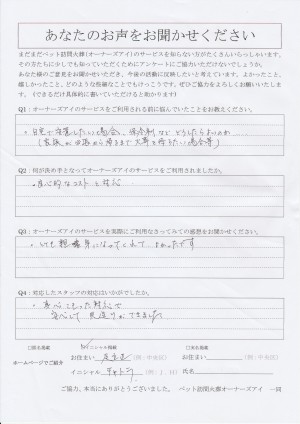 あなたのお声をお聞かせください
まだまだペット訪問火葬(オーナーズアイ)のサービスを知らない方がたくさんいらっしゃいます。
その方たちに少しでも知っていただくためにアンケートにご協力いただけないでしょうか。
あなた様のご意見をお聞かせいただき、今後の活動に反映したいと考えています。よかったこと、
嬉しかったこと、どのような些細なことでもけっこうです。ぜひご協力をよろしくお願いいたしま
す。(できるだけ具体的に書いていただけると助かります)
Q1:オーナーズアイのサービスをご利用される前に悩んでいたことをお教えください。
・自宅で安置したい場合、保冷剤など どうしたらよいのか……
Q2:何が決め手となってオーナーズアイのサービスをご利用されましたか。
・良心的なコストと対応
Q3:オーナーズアイのサービスを実際にご利用なさってみての感想をお聞かせください。
・とても親身になってくれて よかったです
Q4:対応したスタッフの対応はいかがでしたか。
・真心こもった対応で
安心して見送りができました
□匿名掲載
イニシャル掲載
□実名掲載
ホームページでご紹介
お住まい
(例:中央区)
お住まい
(例:中央区)
イニシャル
氏名
ご協力、本当にありがとうございました。 ペット訪問火葬オーナーズアイ 一同